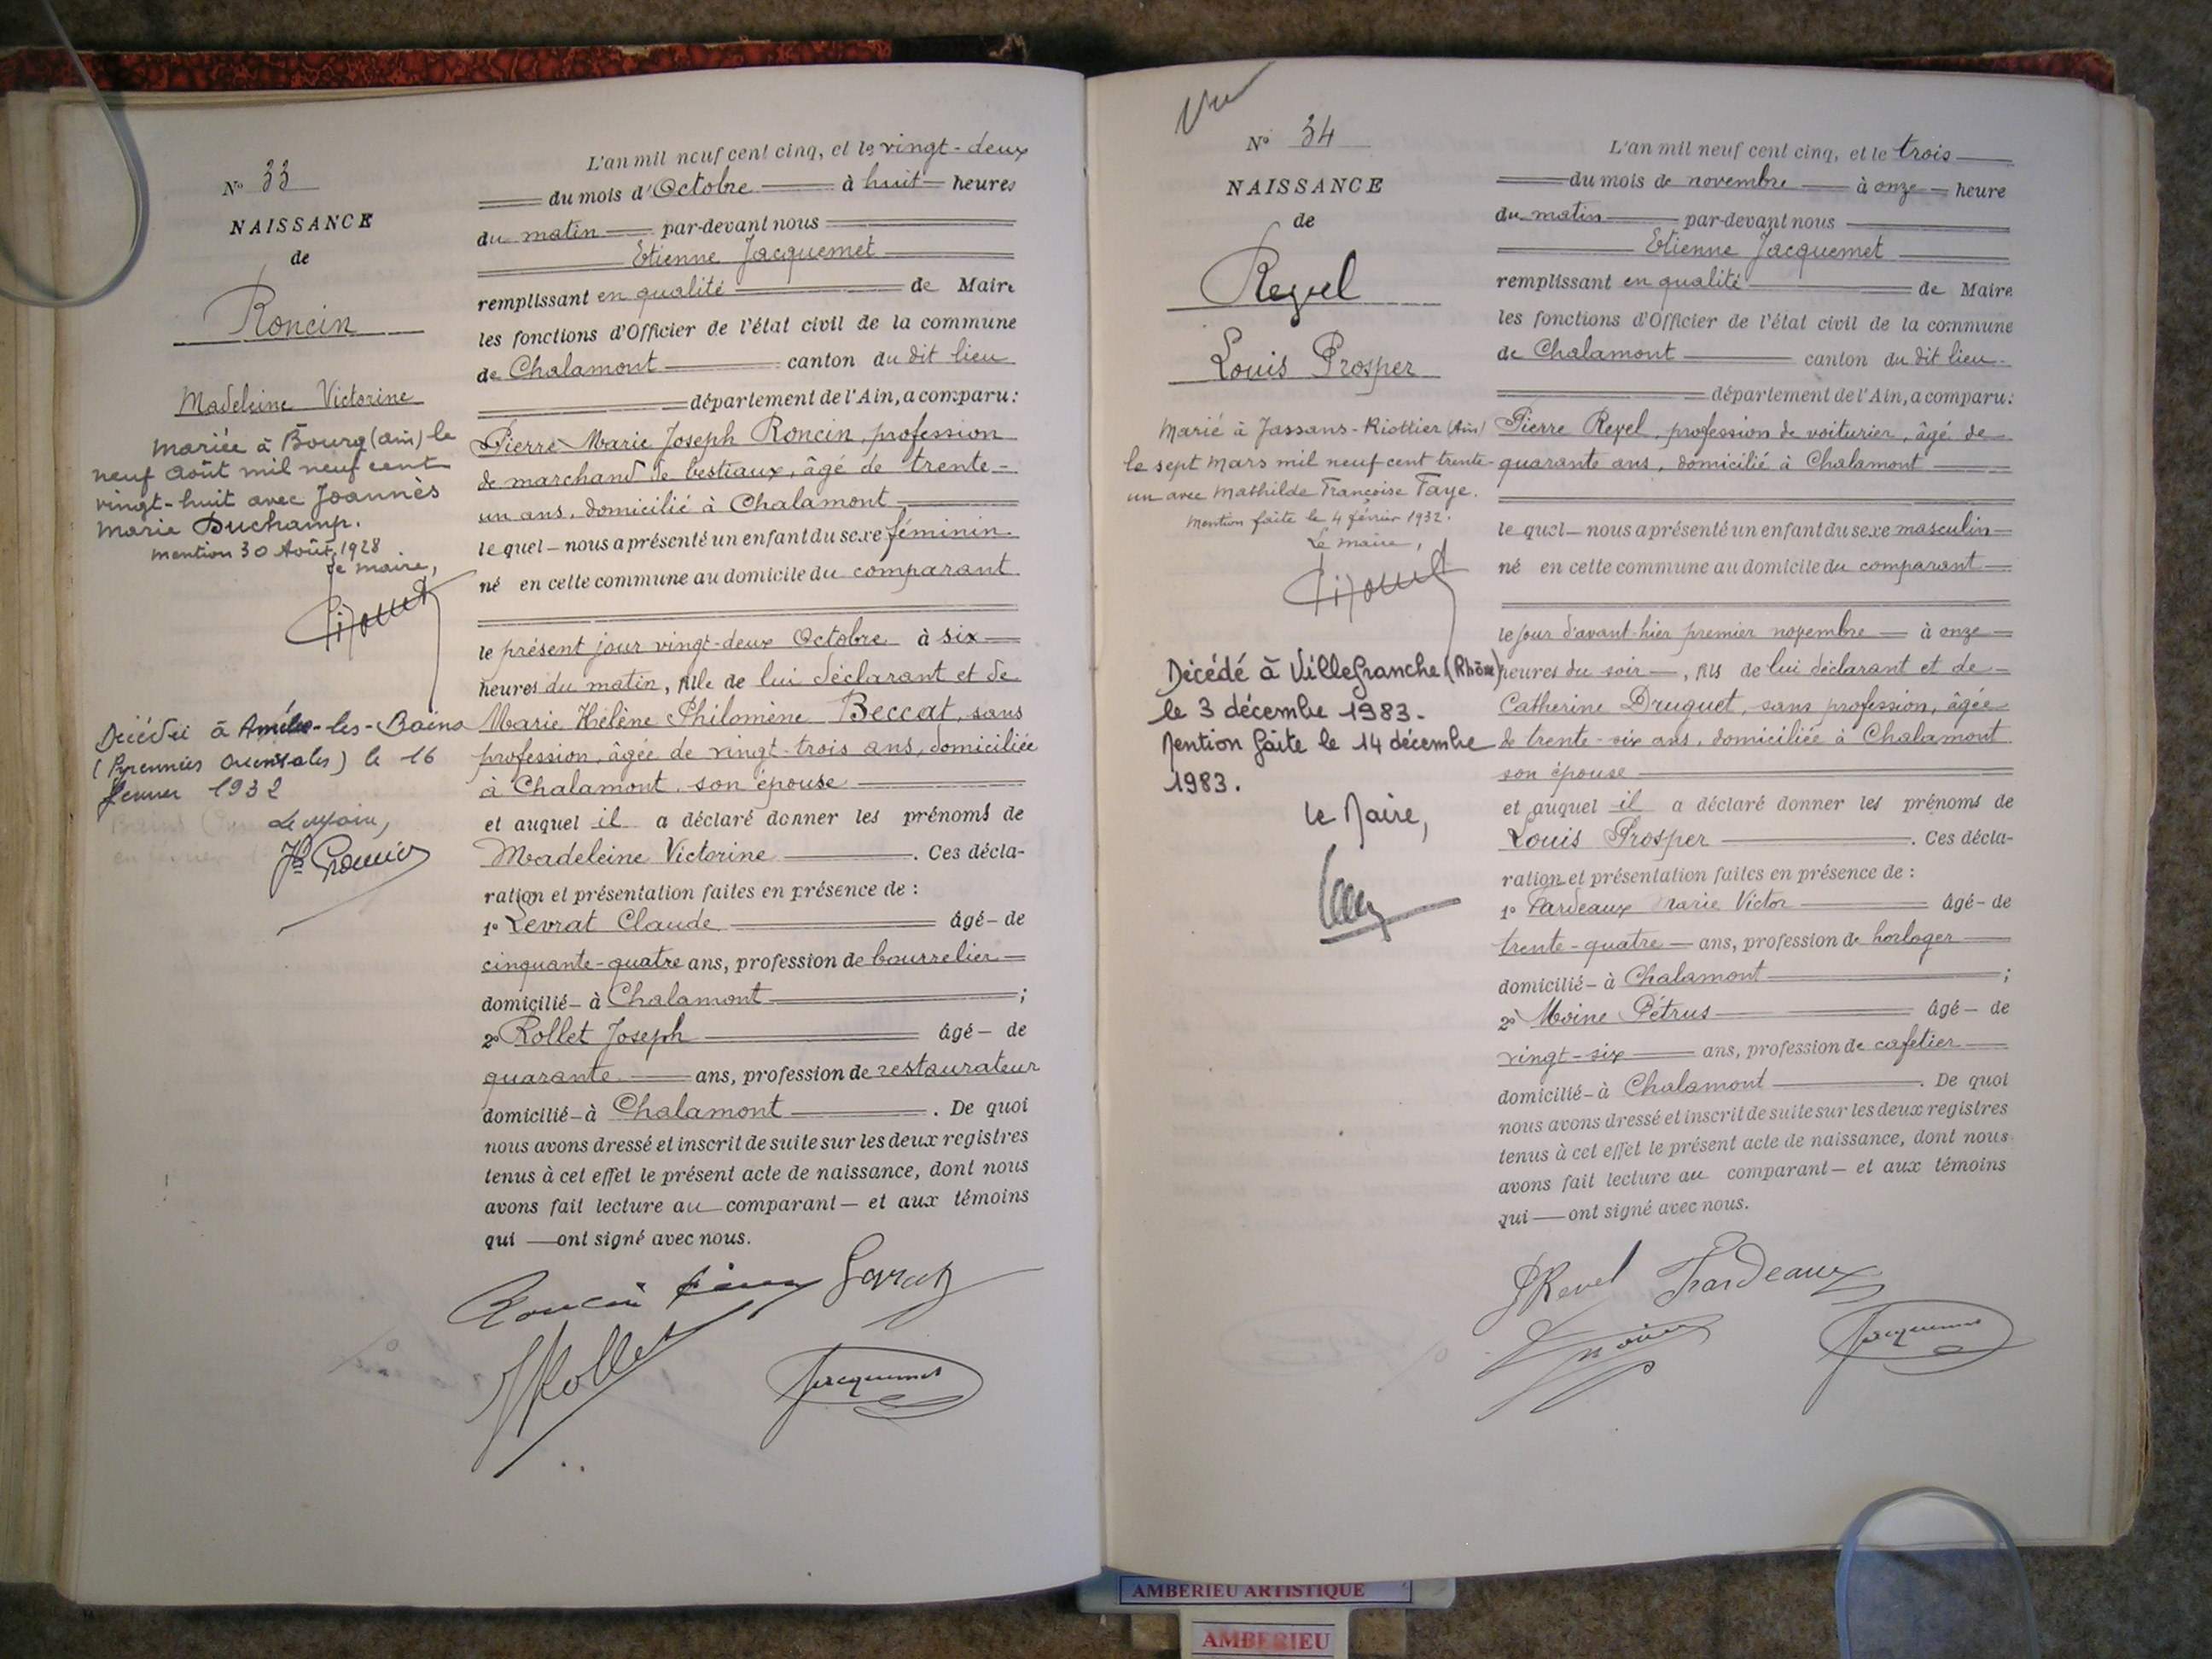 N° 33
NAISSANCE
de
Roncin
Madeleine Victorine
Mariée à Bourg (Ain) le
neuf Août mil neuf cent
vingt-huit avec Joannès
Marie Duchamp.
Mention 30 Août 1928
Le maire,
Décédée à Amélie-les-Bains
(Pyrennées Orientales) le 16
février 1932
Le Maire,
L'an mil neuf cent cinq, et le vingt-deux
du mois d'Octobre à huit heures
du matin par-devant nous
Etienne Jacquemet
remplissant en qualité de Maire
les fonctions d'Officier de l'état civil de la commune
de Chalamont canton du dit lieu
département de l'Ain, a comparu:
Pierre Marie Joseph Roncin, profession
de marchand de bestiaux, âgé de trente-
un ans, domicilié à Chalamont
lequel – nous a présenté un enfant du sexe féminin
né en cette commune au domicile du comparant
le présent jour vingt-deux Octobre à six
heures du matin, fille de lui déclarant et de
Marie Hélène Philomène Beccat, sans
profession, âgée de vingt-trois ans, domiciliée
à Chalamont, son épouse
et auquel il a déclaré donner les prénoms de
Madeleine Victorine . Ces décla-
ration et présentation faites en présence de :
1° Levrat Claude âgé – de
cinquante-quatre ans, profession de bourrelier
domicilié – à Chalamont ;
2° Rollet Joseph âgé – de
quarante ans, profession de restaurateur
domicilié – à Chalamont . De quoi
nous avons dressé et inscrit de suite sur les deux registres
tenus à cet effet le présent acte de naissance, dont nous
avons fait lecture au comparant – et aux témoins
qui – ont signé avec nous.
Roncin Levrat
JRollet Jacquemet
Vu
N° 34
NAISSANCE
de
Revel
Louis Prosper
Marié à Jassans-Riottier (Ain)
le sept Mars mil neuf cent trente-
un avec Mathilde Françoise Faye.
Mention faite le 4 février 1932.
Le maire,
Décédé à Villefranche (Rhône)
le 3 décembre 1983.
Mention faite le 14 décembre
1983.
Le Maire,
L'an mil neuf cent cinq, et le trois
du mois de novembre à onze heure
du matin par-devant nous
Etienne Jacquemet
remplissant en qualité de Maire
les fonctions d'Officier de l'état civil de la commune
de Chalamont canton du dit lieu
département de l'Ain, a comparu:
Pierre Revel, profession de voiturier, âgé de
quarante ans, domicilié à Chalamont
lequel – nous a présenté un enfant du sexe masculin
né en cette commune au domicile du comparant
le jour d'avant-hier premier novembre à onze
heures du soir –, fils de lui déclarant et de
Catherine Druguet, sans profession, âgée
de trente-six ans, domiciliée à Chalamont
son épouse
et auquel il a déclaré donner les prénoms de
Louis Prosper . Ces décla-
ration et présentation faites en présence de :
1° Pardeaux Marie Victor âgé – de
trente-quatre ans, profession de horloger
domicilié – à Chalamont ;
2° Moine Pétrus âgé – de
vingt-six ans, profession de cafetier
domicilié – à Chalamont . De quoi
nous avons dressé et inscrit de suite sur les deux registres
tenus à cet effet le présent acte de naissance, dont nous
avons fait lecture au comparant – et aux témoins
qui – ont signé avec nous.
PRevel Pardeaux
Moine Jacquemet
AMBERIEU ARTISTIQUE
AMBERIEU